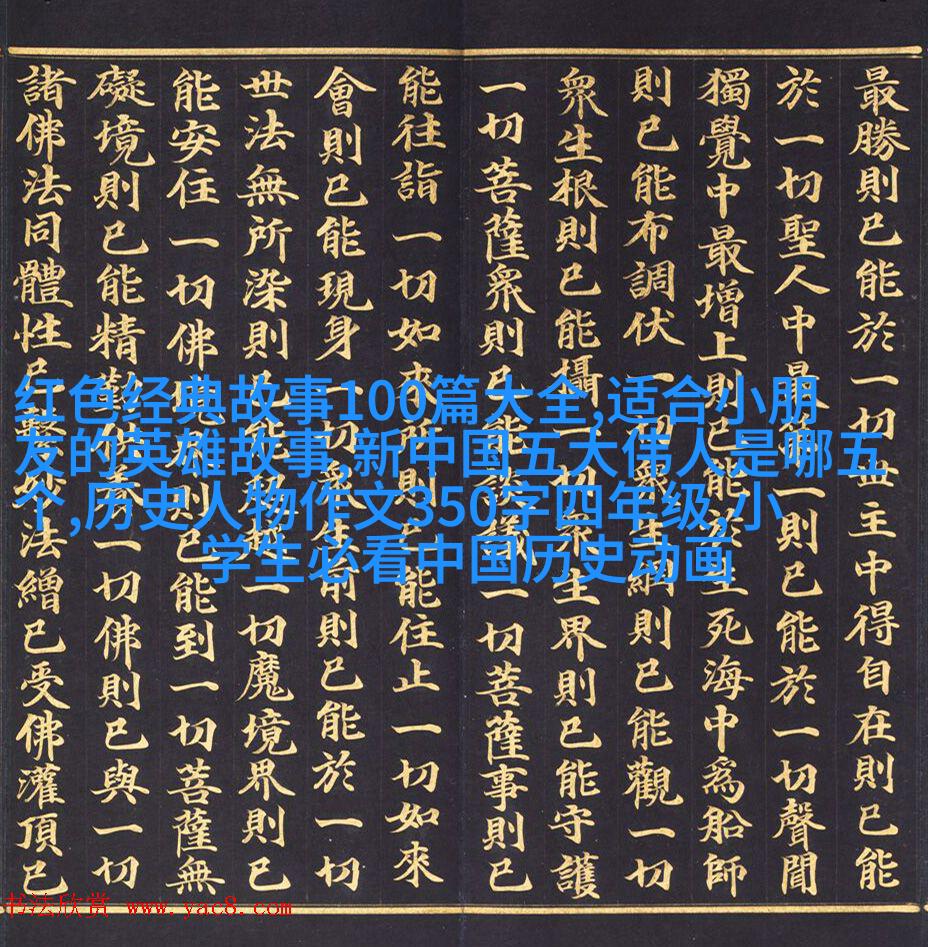 最勝則已能於一切世主中得自在則已能
於一切聖人中最第一則已能於一切聲聞
獨覺中最增上則已能生死海中爲船師
則已能布調伏一切衆生網則已能觀一切
衆生根則已能攝一切衆生界則已能守護
一切菩薩衆則已能談議一切菩薩事則已
能往詣一切如來所則已能住止一切如來
會則已能現身一切衆生前則已能於一切
世法無所染則已能超越一切魔境界則已
能安住一切佛境界則已能到一切菩薩無
礙境則已能精勤供養一切佛則已與一切
諸佛法同體性已繫妙法繒已受佛灌頂已
红色经典故事100篇大全,适合小朋
友的英雄故事,新中国五大伟人是哪五
个,历史人物作文350字四年级,小
学生必看中国历史动画
书法欣赏 www.yac8.com